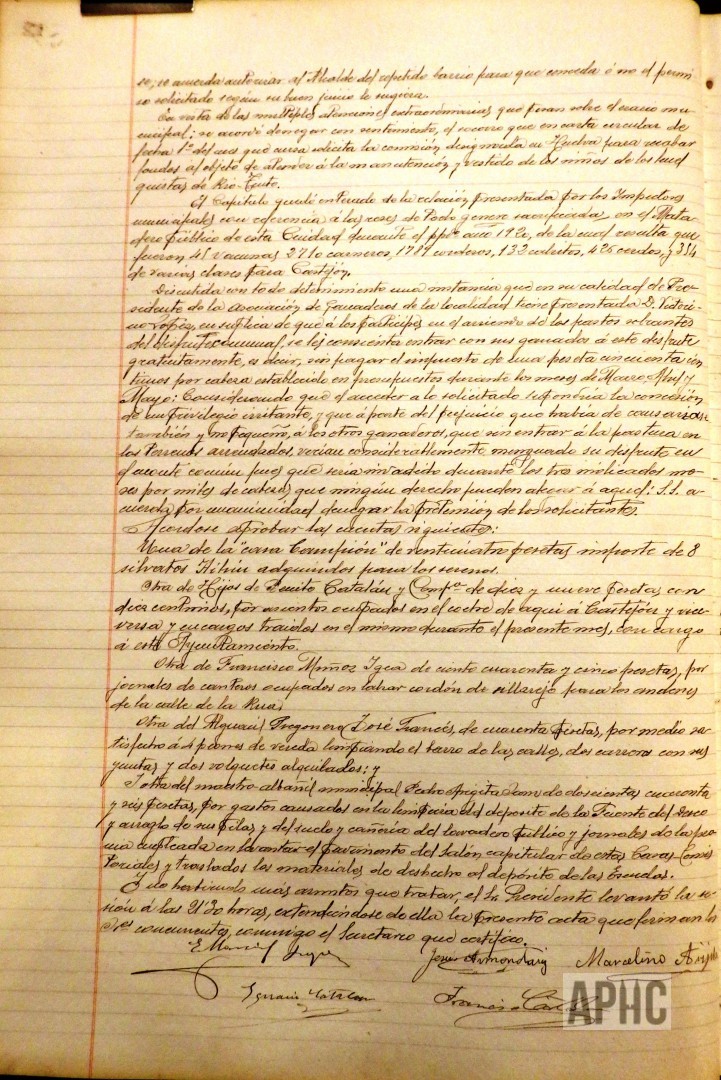 so, se acuerda autorizar al Alcalde del repetido barrio para que conceda ó no el permi
so solicitado según su buen juicio le sugiera.
En vista de las multiples atenciones extraordinarias que pesan sobre el erario mu
nicipal; se acordó denegar con sentimiento, el socorro que en carta circular de
fecha 1º del mes que cursa solicita la comisión designada en Huelva para recabar
fondos al objeto de atender á la manutención y vestido de los niños de los huel
guistas de Rio-Tinto.
El Capítulo quedó enterado de la relación presentada por los Inspectores
municipales con referencia á las reses de todo genero sacrificadas en el Mata
dero público de esta Ciudad durante el ppdo año 1920, de la cual resulta que
fueron 45 vacunas 2710 carneros, 1787 corderos, 132 cabritos, 426 cerdos, y 354
de varias clases para Castejón.
Discutida con todo detenimiento una instancia que en su calidad de Pre
sidente de la Asociación de Ganaderos de la localidad tiene presentada D. Victori
no López, en súplica de que á los participes en el arriendo de los pastos sobrantes
del disfrute comunal, se les consienta entrar con sus ganados á este disfrute
gratuitamente, es decir, sin pagar el impuesto de una peseta cincuenta cén
timos por cabeza establecido en presupuestos durante los meses de Marzo, Abril y
Mayo: Considerando que el acceder a lo solicitado supondría la concesión
de un privilegio irritante, y que á parte del perjuicio que había de causarse
también y no pequeño, á los otros ganaderos, que sin entrar á la pastura en
los terrenos arrendados, verían considerablemente menguado su disfrute en
el monte común pues que sería invadido durante los tres indicados me
ses por miles de cabezas que ningún derecho pueden alegar á aquel: S.S. a
cuerda por unanimidad denegar la pretensión de los solicitantes.
Acordose aprobar las cuentas siguientes:
Una de la "casa Campión" de venticuatro pesetas importe de 8
silvatos adquiridos para los serenos.
Otra de Hijos de Benito Catalán y Compª de diez y nueve pesetas con
diez centimos, por asientos ocupados en el coche de aqui á Castejón y vice
versa y encargos traidos en el mismo durante el presente mes, con cargo
á este Ayuntamiento.
Otra de Francisco Muñoz Igea de ciento cuarenta y cinco pesetas, por
jornales de canteros ocupados en labrar cordón de sillarejo para los andenes
de la calle de la Rua;
Otra del Alguacil Pregonero José Francés, de cuarenta pesetas, por medio sa
tisfecho á 4 peones de vereda limpiando el barro de las calles, dos carreros con sus
yuntas y dos volquetes alquilados; y
Y otra del maestro albañil municipal Pedro Argita de doscientas cuarenta
y seis pesetas, por gastos causados en la limpieza del deposito de la Fuente del
y arreglo de sus pilas y del suelo y cañería del lavadero público y jornales de la pie
dra empleada en levantar el pavimento del Salón capitular de estas Casas Consis
toriales y traslados los materiales de deshecho al depósito de las Escuelas.
Y no habiendo más asuntos que tratar, el Sr. Presidente levantó la se
sión á las 21'30 horas, extendiéndose de ella la presente acta que firman los
Sres concurrentes, conmigo el Secretario que certifico.
Marcelino
Ignacio Catalán
Francisco
APHC